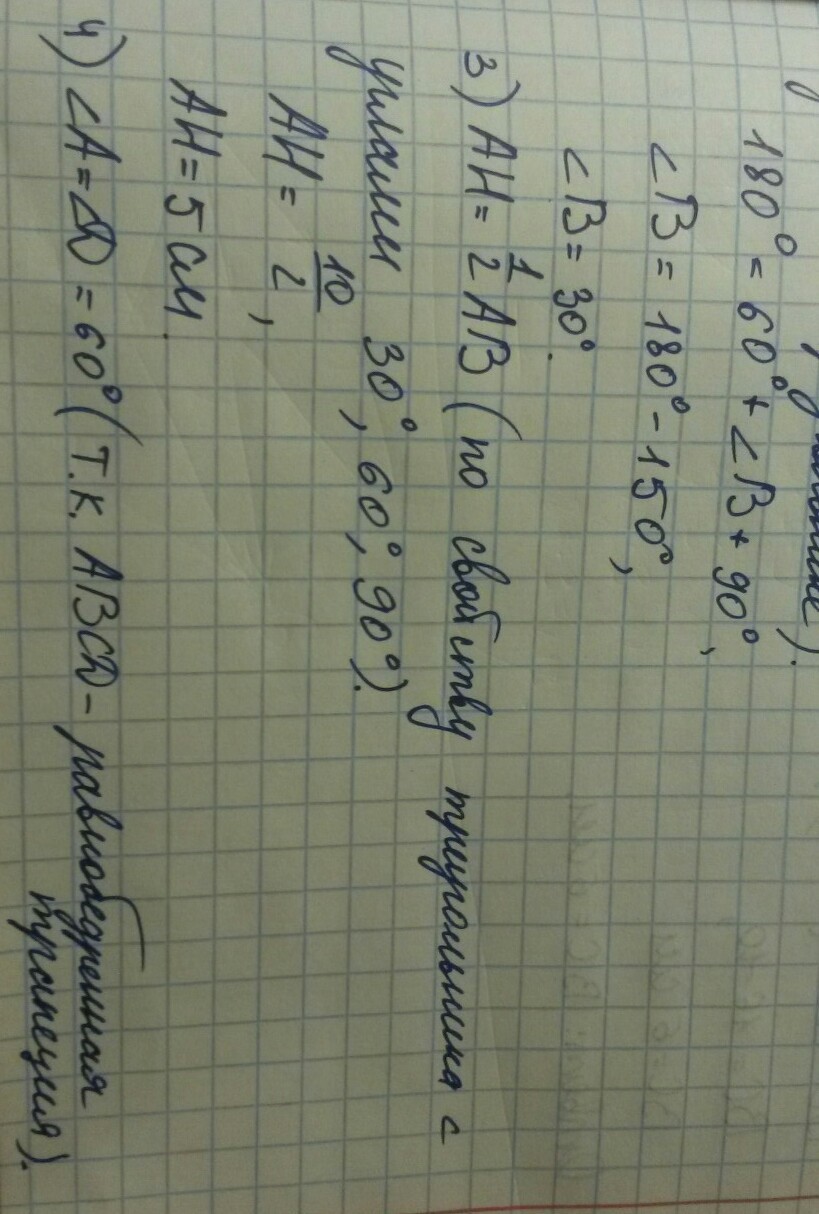 180° = 60° + ∠B + 90°,
∠B = 180° - 150°,
∠B = 30°.
3) AH = 1/2 AB (по свойству треугольника с
углами 30°, 60°, 90°).
AH = 10/2,
AH = 5 см.
4) ∠A = ∠D = 60° (т.к. ABCD - равнобедренная
трапеция).